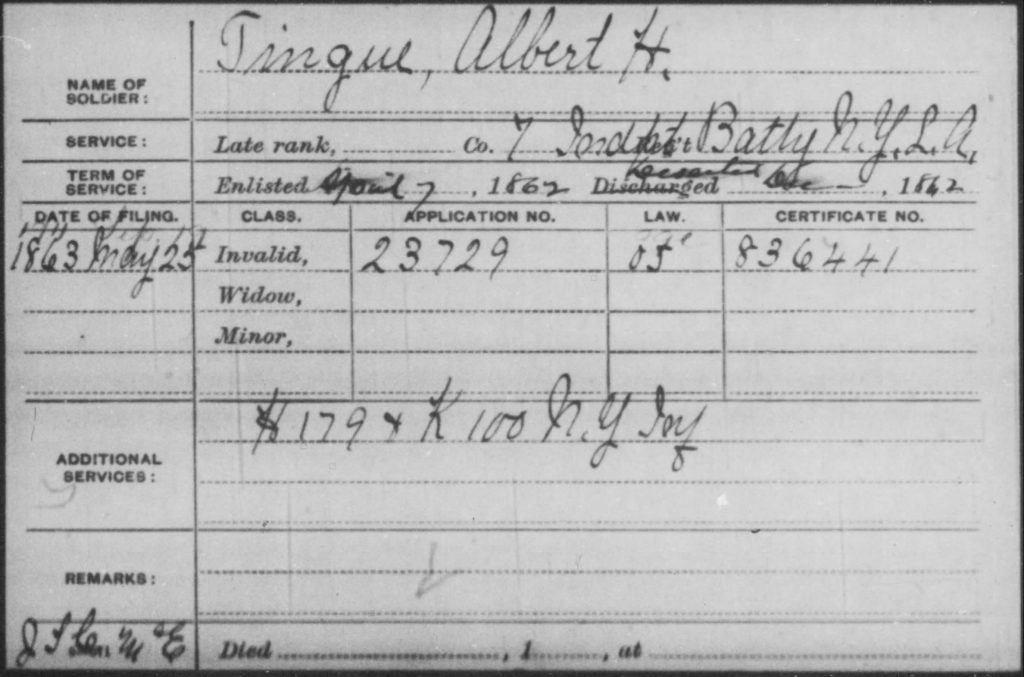 NAME OF SOLDIER: Tingue, Albert H.
SERVICE: Late rank, Co. 7 Indpt Batty N.Y.L.A.
TERM OF SERVICE: Enlisted April 7, 1862 Discharged Deserted Dec, 1862
DATE OF FILING. CLASS. APPLICATION NO. LAW. CERTIFICATE NO.
1863 May 25 Invalid, 23729 836441
Widow,
Minor,
H 179 & K 100 N.Y Inf
ADDITIONAL SERVICES:
REMARKS:
Died , 1 , at